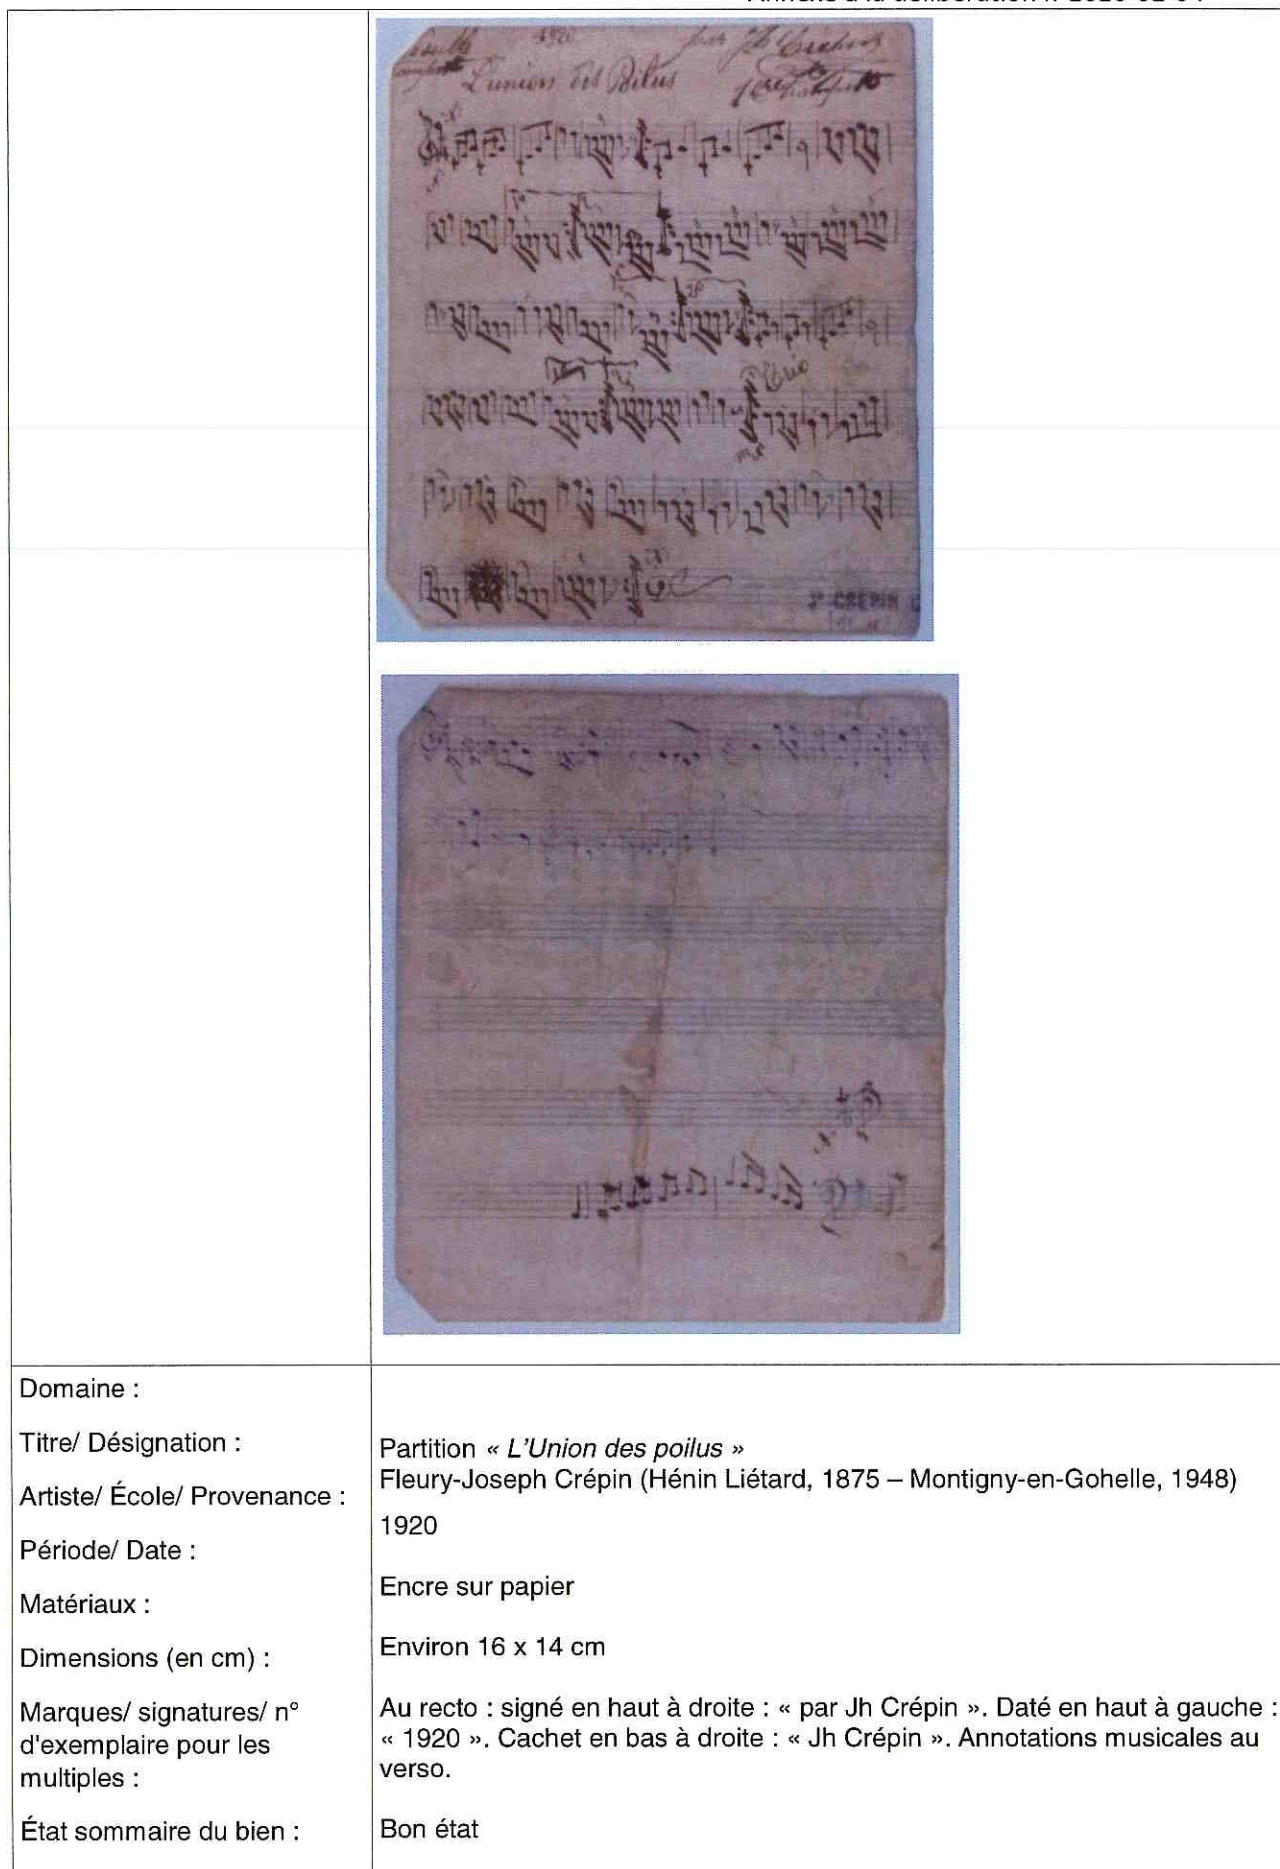 1920
par Jh Crépin
L'union des Poilus
1ere
Trio
mf
Jh CREPIN
Domaine :
Titre/ Désignation :
Partition « L'Union des poilus »
Artiste/ École/ Provenance :
Fleury-Joseph Crépin (Hénin Liétard, 1875 – Montigny-en-Gohelle, 1948)
Période/ Date :
1920
Matériaux :
Encre sur papier
Dimensions (en cm) :
Environ 16 x 14 cm
Marques/ signatures/ n°
d'exemplaire pour les
multiples :
Au recto : signé en haut à droite : « par Jh Crépin ». Daté en haut à gauche :
« 1920 ». Cachet en bas à droite : « Jh Crépin ». Annotations musicales au
verso.
État sommaire du bien :
Bon état